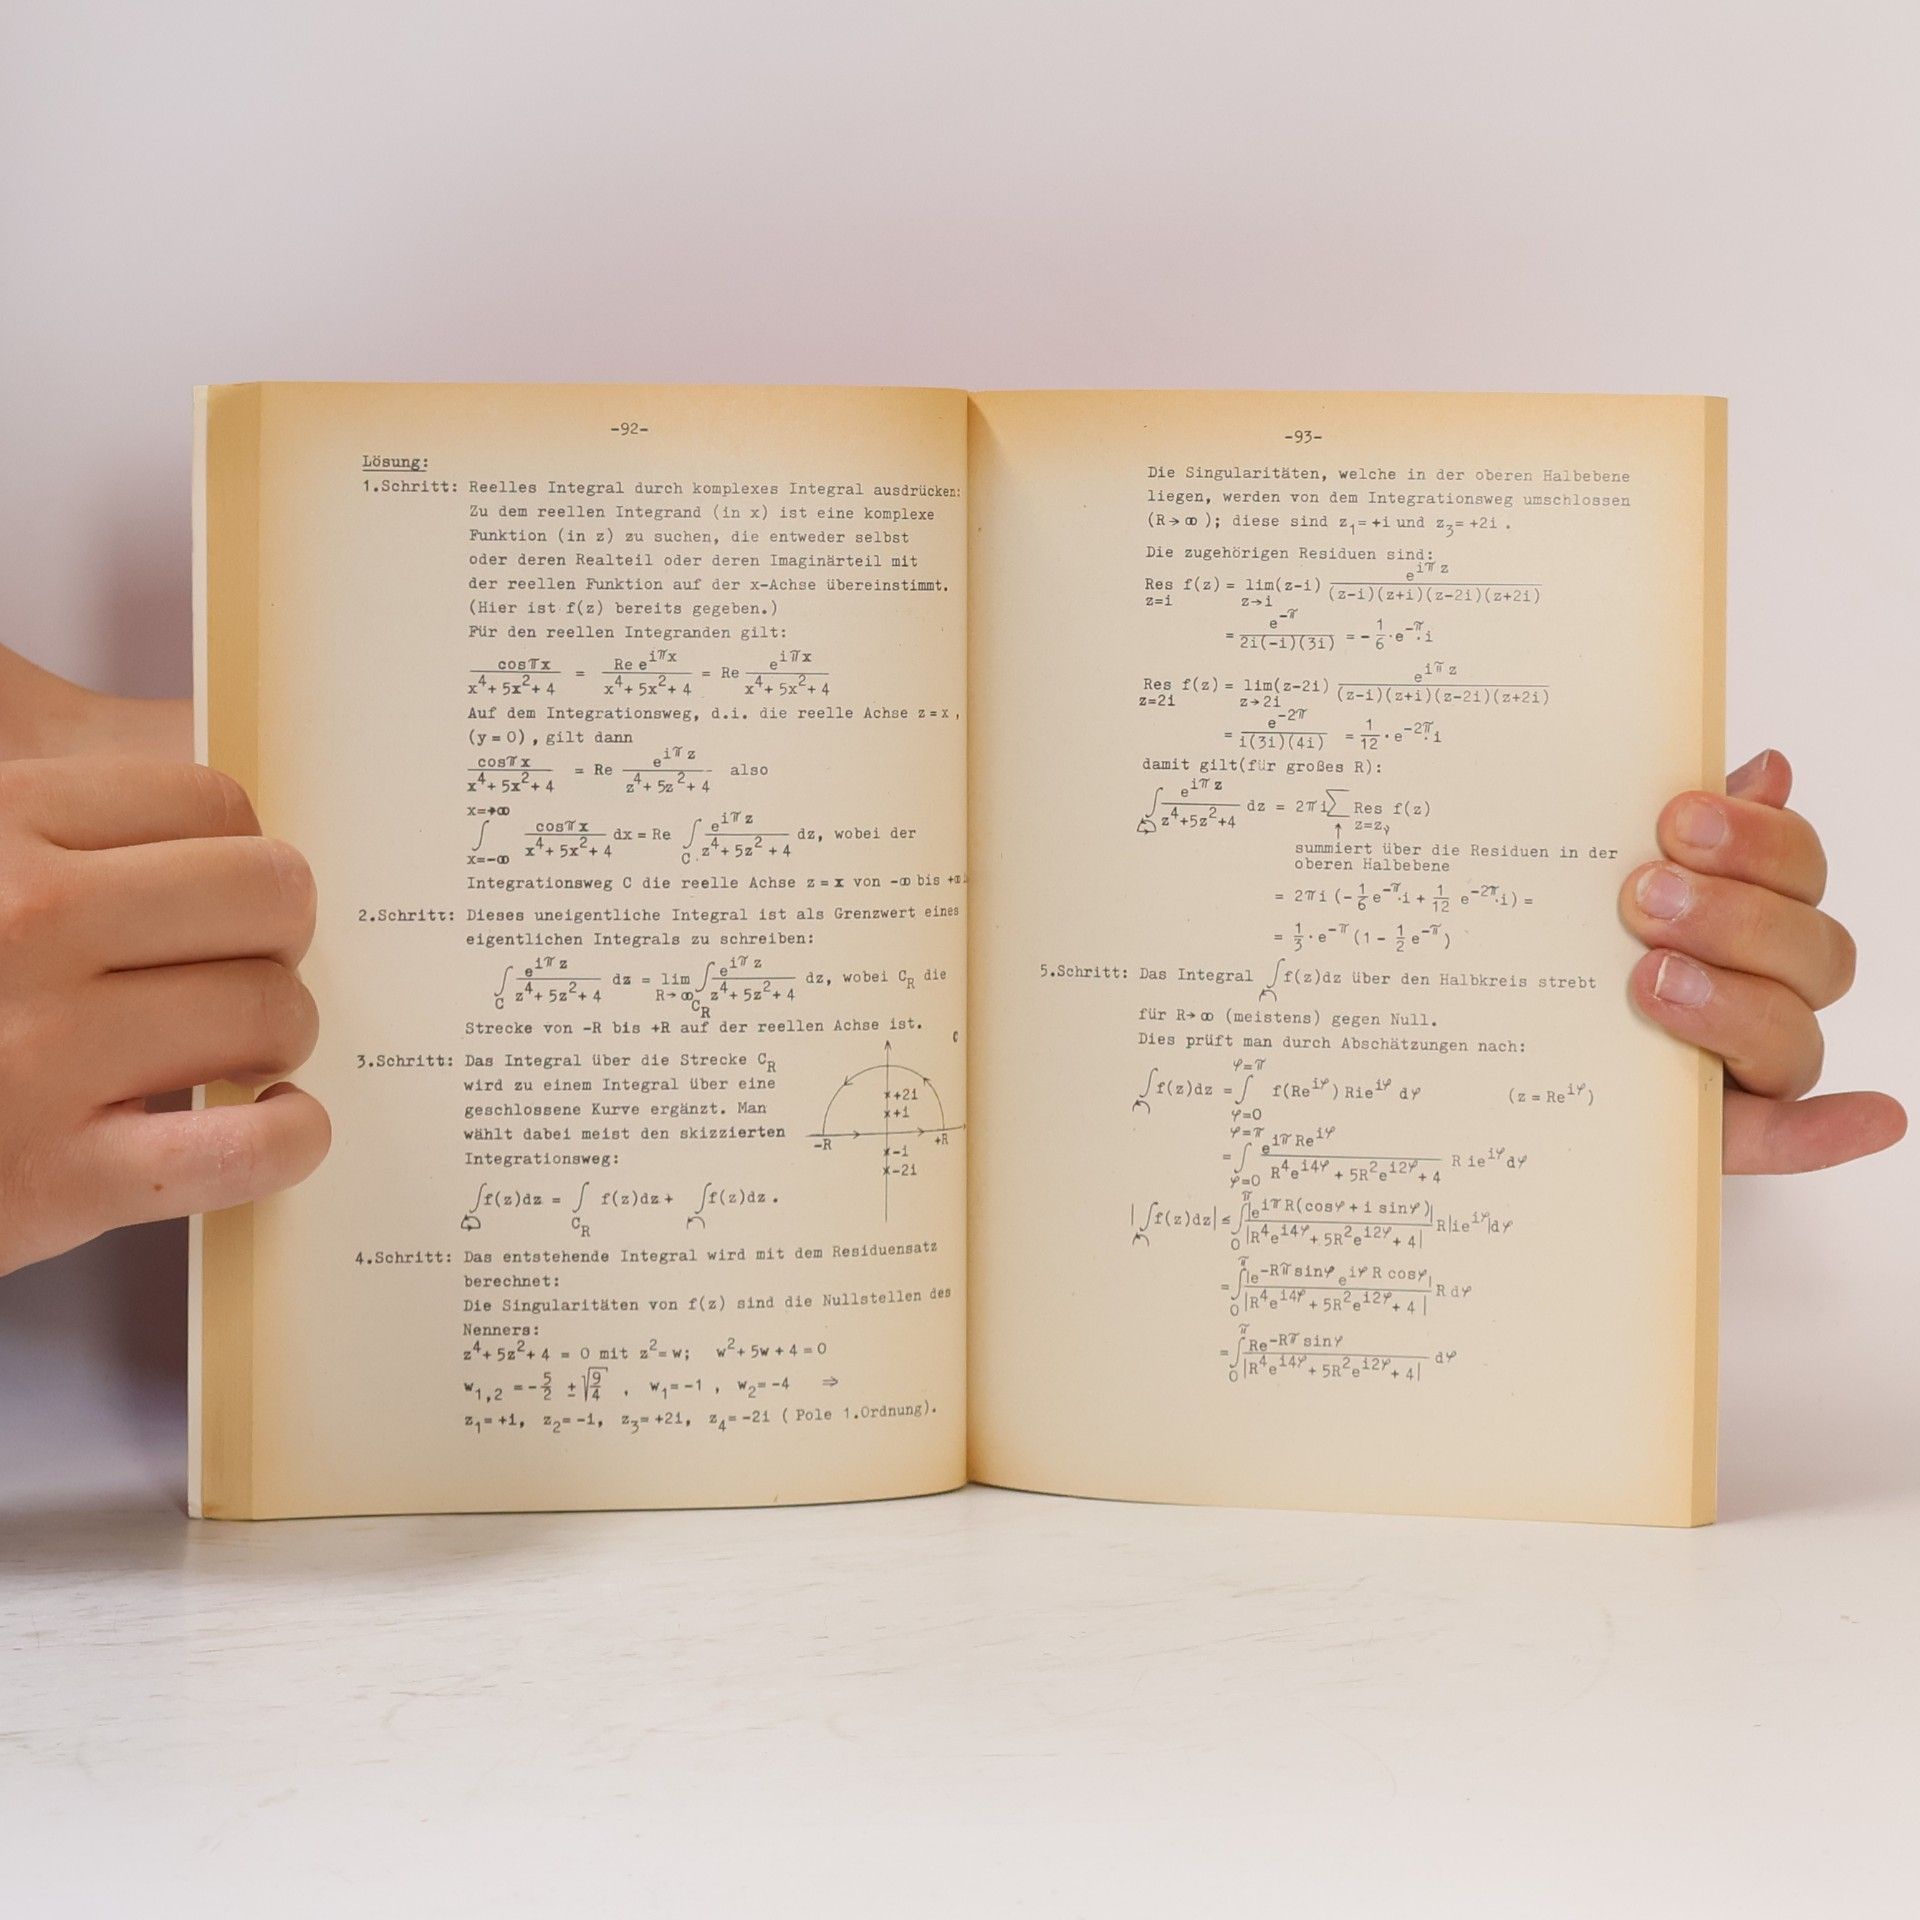 -92-
Lösung:
1.Schritt: Reelles Integral durch komplexes Integral ausdrücken:
Zu dem reellen Integrand (in x) ist eine komplexe
Funktion (in z) zu suchen, die entweder selbst
oder deren Realteil oder deren Imaginärteil mit
der reellen Funktion auf der x-Achse übereinstimmt.
(Hier ist f(z) bereits gegeben.)
Für den reellen Integranden gilt:
cosπx/(x⁴+5x²+4) = Re e^(iπx)/(x⁴+5x²+4) = Re e^(iπx)/(x⁴+5x²+4)
Auf dem Integrationsweg, d.i. die reelle Achse z=x,
(y=0), gilt dann
cosπx/(x⁴+5x²+4) = Re e^(iπz)/(z⁴+5z²+4) also
∫_(x=-∞)^(x=+∞) cosπx/(x⁴+5x²+4) dx = Re ∫_C e^(iπz)/(z⁴+5z²+4) dz, wobei der
Integrationsweg C die reelle Achse z=x von -∞ bis +∞
2.Schritt: Dieses uneigentliche Integral ist als Grenzwert eines
eigentlichen Integrals zu schreiben:
∫_C e^(iπz)/(z⁴+5z²+4) dz = lim_(R→∞) ∫_(C_R) e^(iπz)/(z⁴+5z²+4) dz, wobei C_R die
Strecke von -R bis +R auf der reellen Achse ist.
3.Schritt: Das Integral über die Strecke C_R
wird zu einem Integral über eine
geschlossene Kurve ergänzt. Man
wählt dabei meist den skizzierten
Integrationsweg:
+2i
+i
-R
+R
-i
-2i
∫f(z)dz = ∫_(C_R) f(z)dz + ∫f(z)dz.
4.Schritt: Das entstehende Integral wird mit dem Residuensatz
berechnet:
Die Singularitäten von f(z) sind die Nullstellen des
Nenners:
z⁴+5z²+4 = 0 mit z²=w; w²+5w+4=0
w_(1,2) = -5/2 ± √(9/4), w₁=-1, w₂=-4 ⇒
z₁=+i, z₂=-i, z₃=+2i, z₄=-2i (Pole 1.Ordnung).
-93-
Die Singularitäten, welche in der oberen Halbebene
liegen, werden von dem Integrationsweg umschlossen
(R→∞); diese sind z₁=+i und z₃=+2i.
Die zugehörigen Residuen sind:
Res_(z=i) f(z) = lim_(z→i) (z-i) e^(iπz)/((z-i)(z+i)(z-2i)(z+2i))
= e^(-π)/(2i(-i)(3i)) = -1/6·e^(-π)·i
Res_(z=2i) f(z) = lim_(z→2i) (z-2i) e^(iπz)/((z-i)(z+i)(z-2i)(z+2i))
= e^(-2π)/(i(3i)(4i)) = 1/12·e^(-2π)·i
damit gilt(für großes R):
∫ e^(iπz)/(z⁴+5z²+4) dz = 2πi ∑_(z=z_ν) Res f(z)
summiert über die Residuen in der
oberen Halbebene
= 2πi(-1/6 e^(-π)·i + 1/12 e^(-2π)·i) =
= 1/3·e^(-π)(1 - 1/2 e^(-π))
5.Schritt: Das Integral ∫f(z)dz über den Halbkreis strebt
für R→∞ (meistens) gegen Null.
Dies prüft man durch Abschätzungen nach:
∫f(z)dz = ∫_(φ=0)^(φ=π) f(Re^(iφ))Rie^(iφ) dφ (z=Re^(iφ))
= ∫_(φ=0)^(φ=π) e^(iπRe^(iφ))/(R⁴e^(i4φ)+5R²e^(i2φ)+4) R ie^(iφ)dφ
|∫f(z)dz| ≤ ∫_0^π |e^(iπR(cosφ+i sinφ))|/|R⁴e^(i4φ)+5R²e^(i2φ)+4| R|ie^(iφ)|dφ
= ∫_0^π |e^(-Rπ sinφ) e^(iφ R cosφ)|/|R⁴e^(i4φ)+5R²e^(i2φ)+4| R dφ
= ∫_0^π Re^(-Rπ sinφ)/|R⁴e^(i4φ)+5R²e^(i2φ)+4| dφ